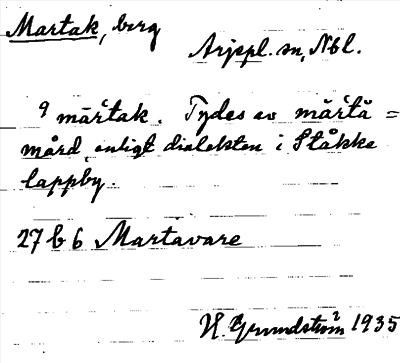 Martak, berg
Arjepl. sn, Nbl.
9 mārtak. Tydes av mārtā =
mård, enligt dialekten i Ståkke
lappby.
27 b 6 Martavare
H. Grundström 1935